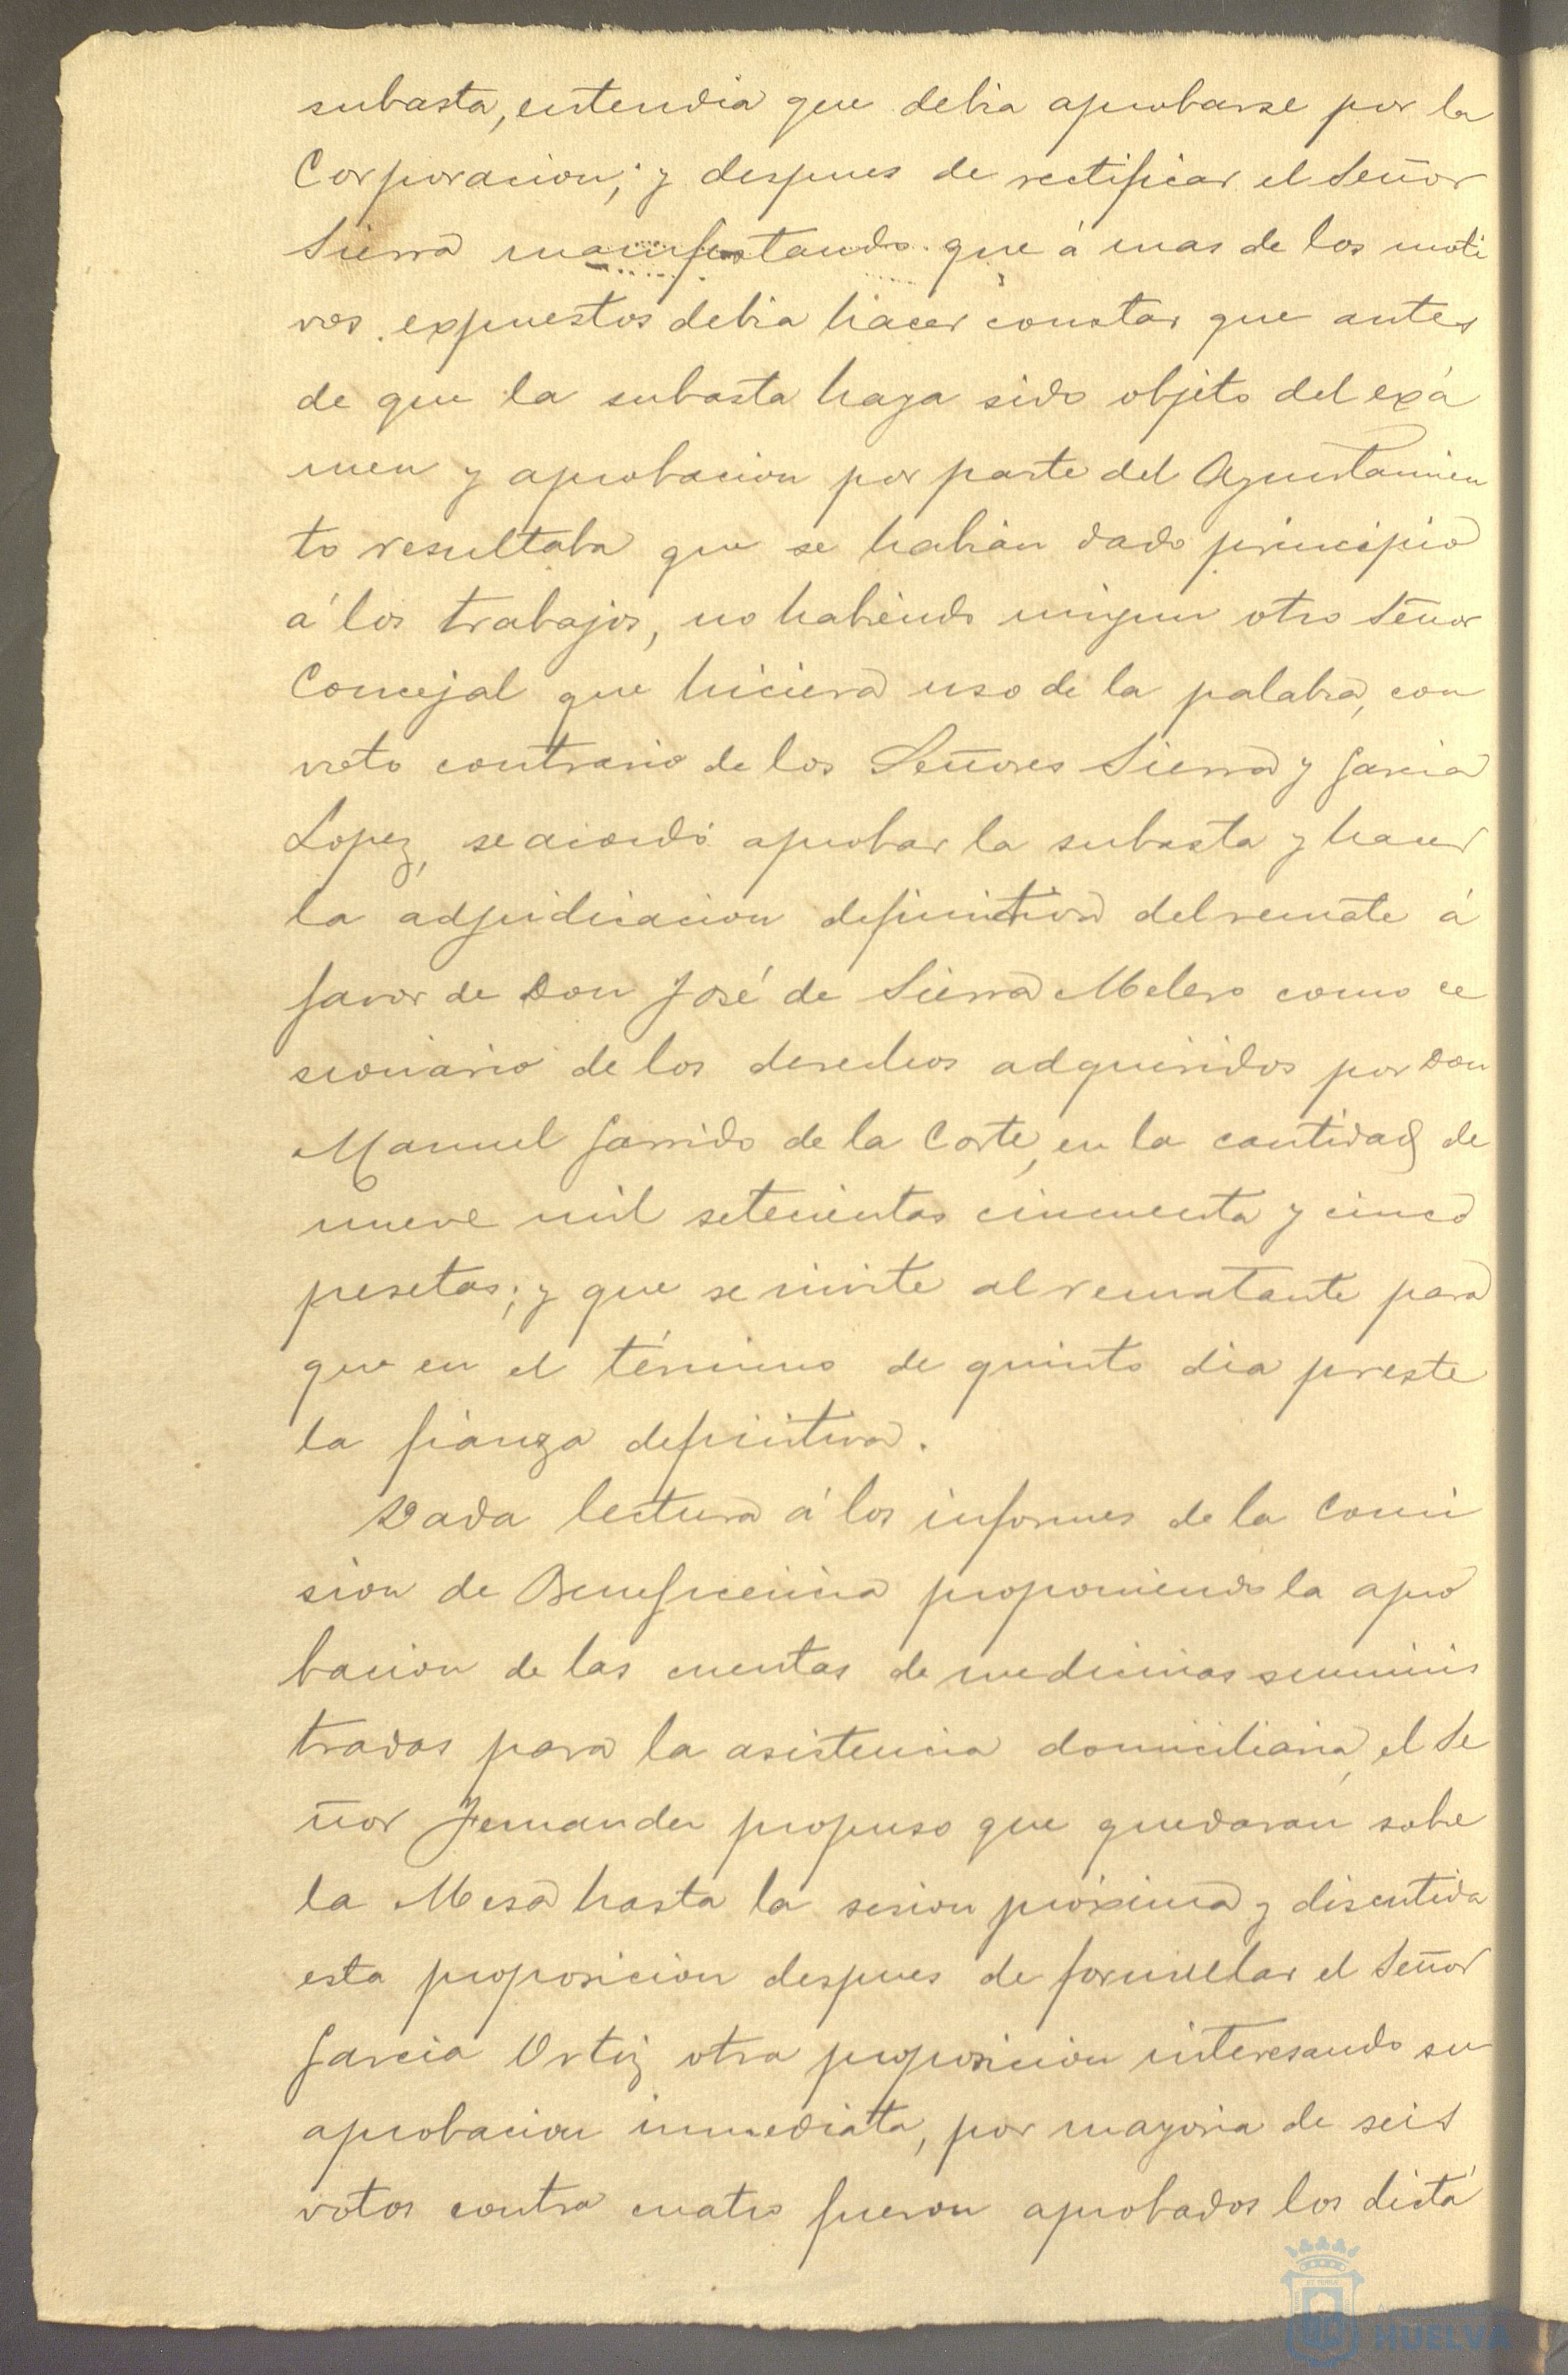 subasta, entendia que debia aprobarse por la
Corporacion; y despues de rectificar el Señor
Sierra manifestando que á mas de los moti
vos expuestos debia hacer constar que antes
de que la subasta haya sido objeto del exá
men y aprobacion por parte del Ayuntamien
to resultaba que se habian dado principio
á los trabajos, no habiendo ningun otro Señor
Concejal que hiciera uso de la palabra, con
voto contrario de los Señores Sierra y Garcia
Lopez, se acordó aprobar la subasta y hacer
la adjudicacion definitiva del remate á
favor de Don José de Sierra Melero como ce
sionario de los derechos adquiridos por Don
Manuel Garrido de la Corte, en la cantidad de
nueve mil setecientas cincuenta y cinco
pesetas; y que se invite al rematante para
que en el término de quinto dia preste
la fianza definitiva.
Dada lectura á los informes de la Comi
sion de Beneficencia proponiendo la apro
bacion de las cuentas de medicinas suminis
tradas para la asistencia domiciliaria, el Se
ñor Fernandez propuso que quedaran sobre
la Mesa hasta la sesion próxima y discutida
esta proposicion despues de formular el Señor
Garcia Ortiz otra proposicion interesando su
aprobacion inmediata, por mayoria de seis
votos contra cuatro fueron aprobados los dictá
HUELVA